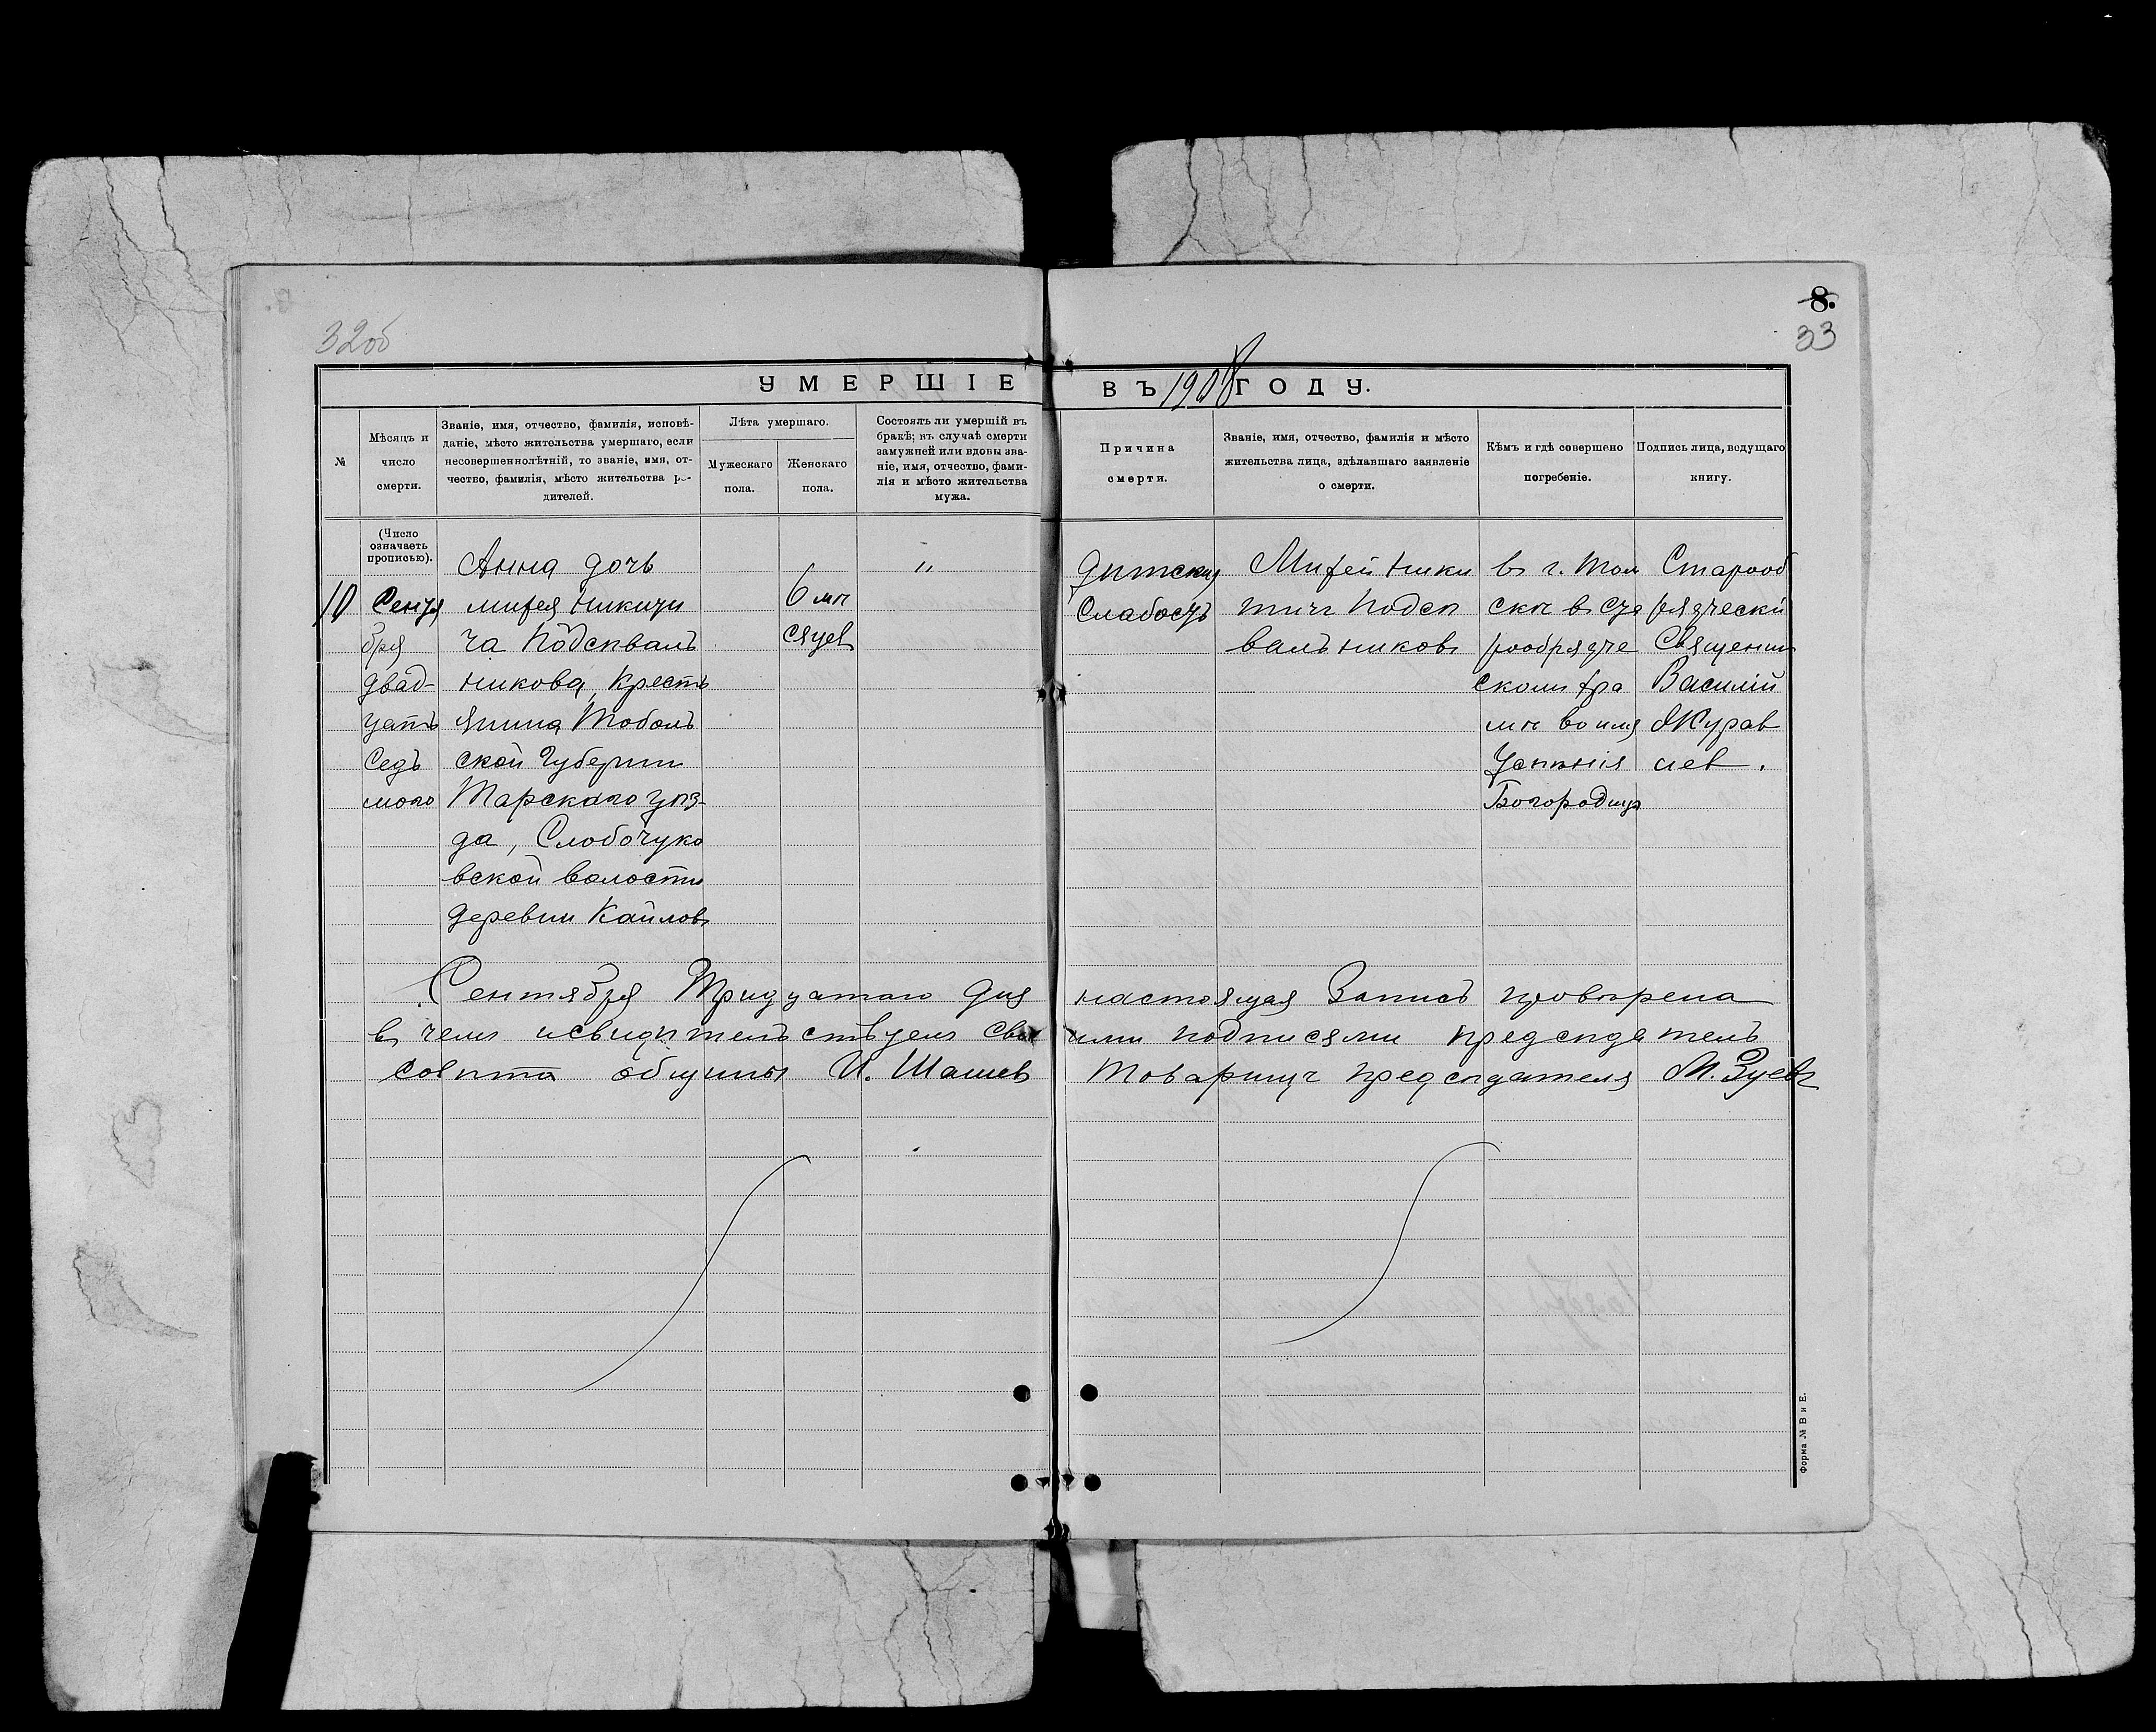 8.
33
32об
УМЕРШІЕ ВЪ 1908 ГОДУ.
№
Мѣсяцъ и
число
смерти.
Званіе, имя, отчество, фамилія, исповѣ-
даніе, мѣсто жительства умершаго, если
несовершеннолѣтній, то званіе, имя, от-
чество, фамилія, мѣсто жительства ро-
дителей.
Лѣта умершаго.
Мужескаго
пола.
Женскаго
пола.
Состоялъ ли умершій въ
бракѣ; въ случаѣ смерти
замужней или вдовы зва-
ніе, имя, отчество, фами-
лія и мѣсто жительства
мужа.
Причина
смерти.
Званіе, имя, отчество, фамилія и мѣсто
жительства лица, здѣлавшаго заявленіе
о смерти.
Кѣмъ и гдѣ совершено
погребеніе.
Подпись лица, ведущаго
книгу.
(Число
означаетъ
прописью).
10
Сентя
бря
двад-
цать
Седь
мого
Анна дочь
мифея Никити
ча Подсѣваль
никова, Кресть
янина Тоболь
ской Губернии
Тарскаго уѣз-
да, Слобочуко
вской волости
деревни Кайловъ
6 мѣ
сяцев
"
Дѣтская
Слабость
Мифей Ники
тичъ Подсѣ
вальниковъ
въ г. Том
скѣ в Ста
рообрядче
скомъ хра
мѣ во имя
Успѣнія
Богородицы
Старооб
рядческий
Священик
Василій
Журав
лев.
Сентября Тридцатаго дня настоящая Запись провѣрена
въ чемъ исвидѣтельствуем своими подписями предсѣдатель
Совѣта общины И. Шашев Товарищъ предсѣдателя М. Зуевъ
Форма № В и Е.